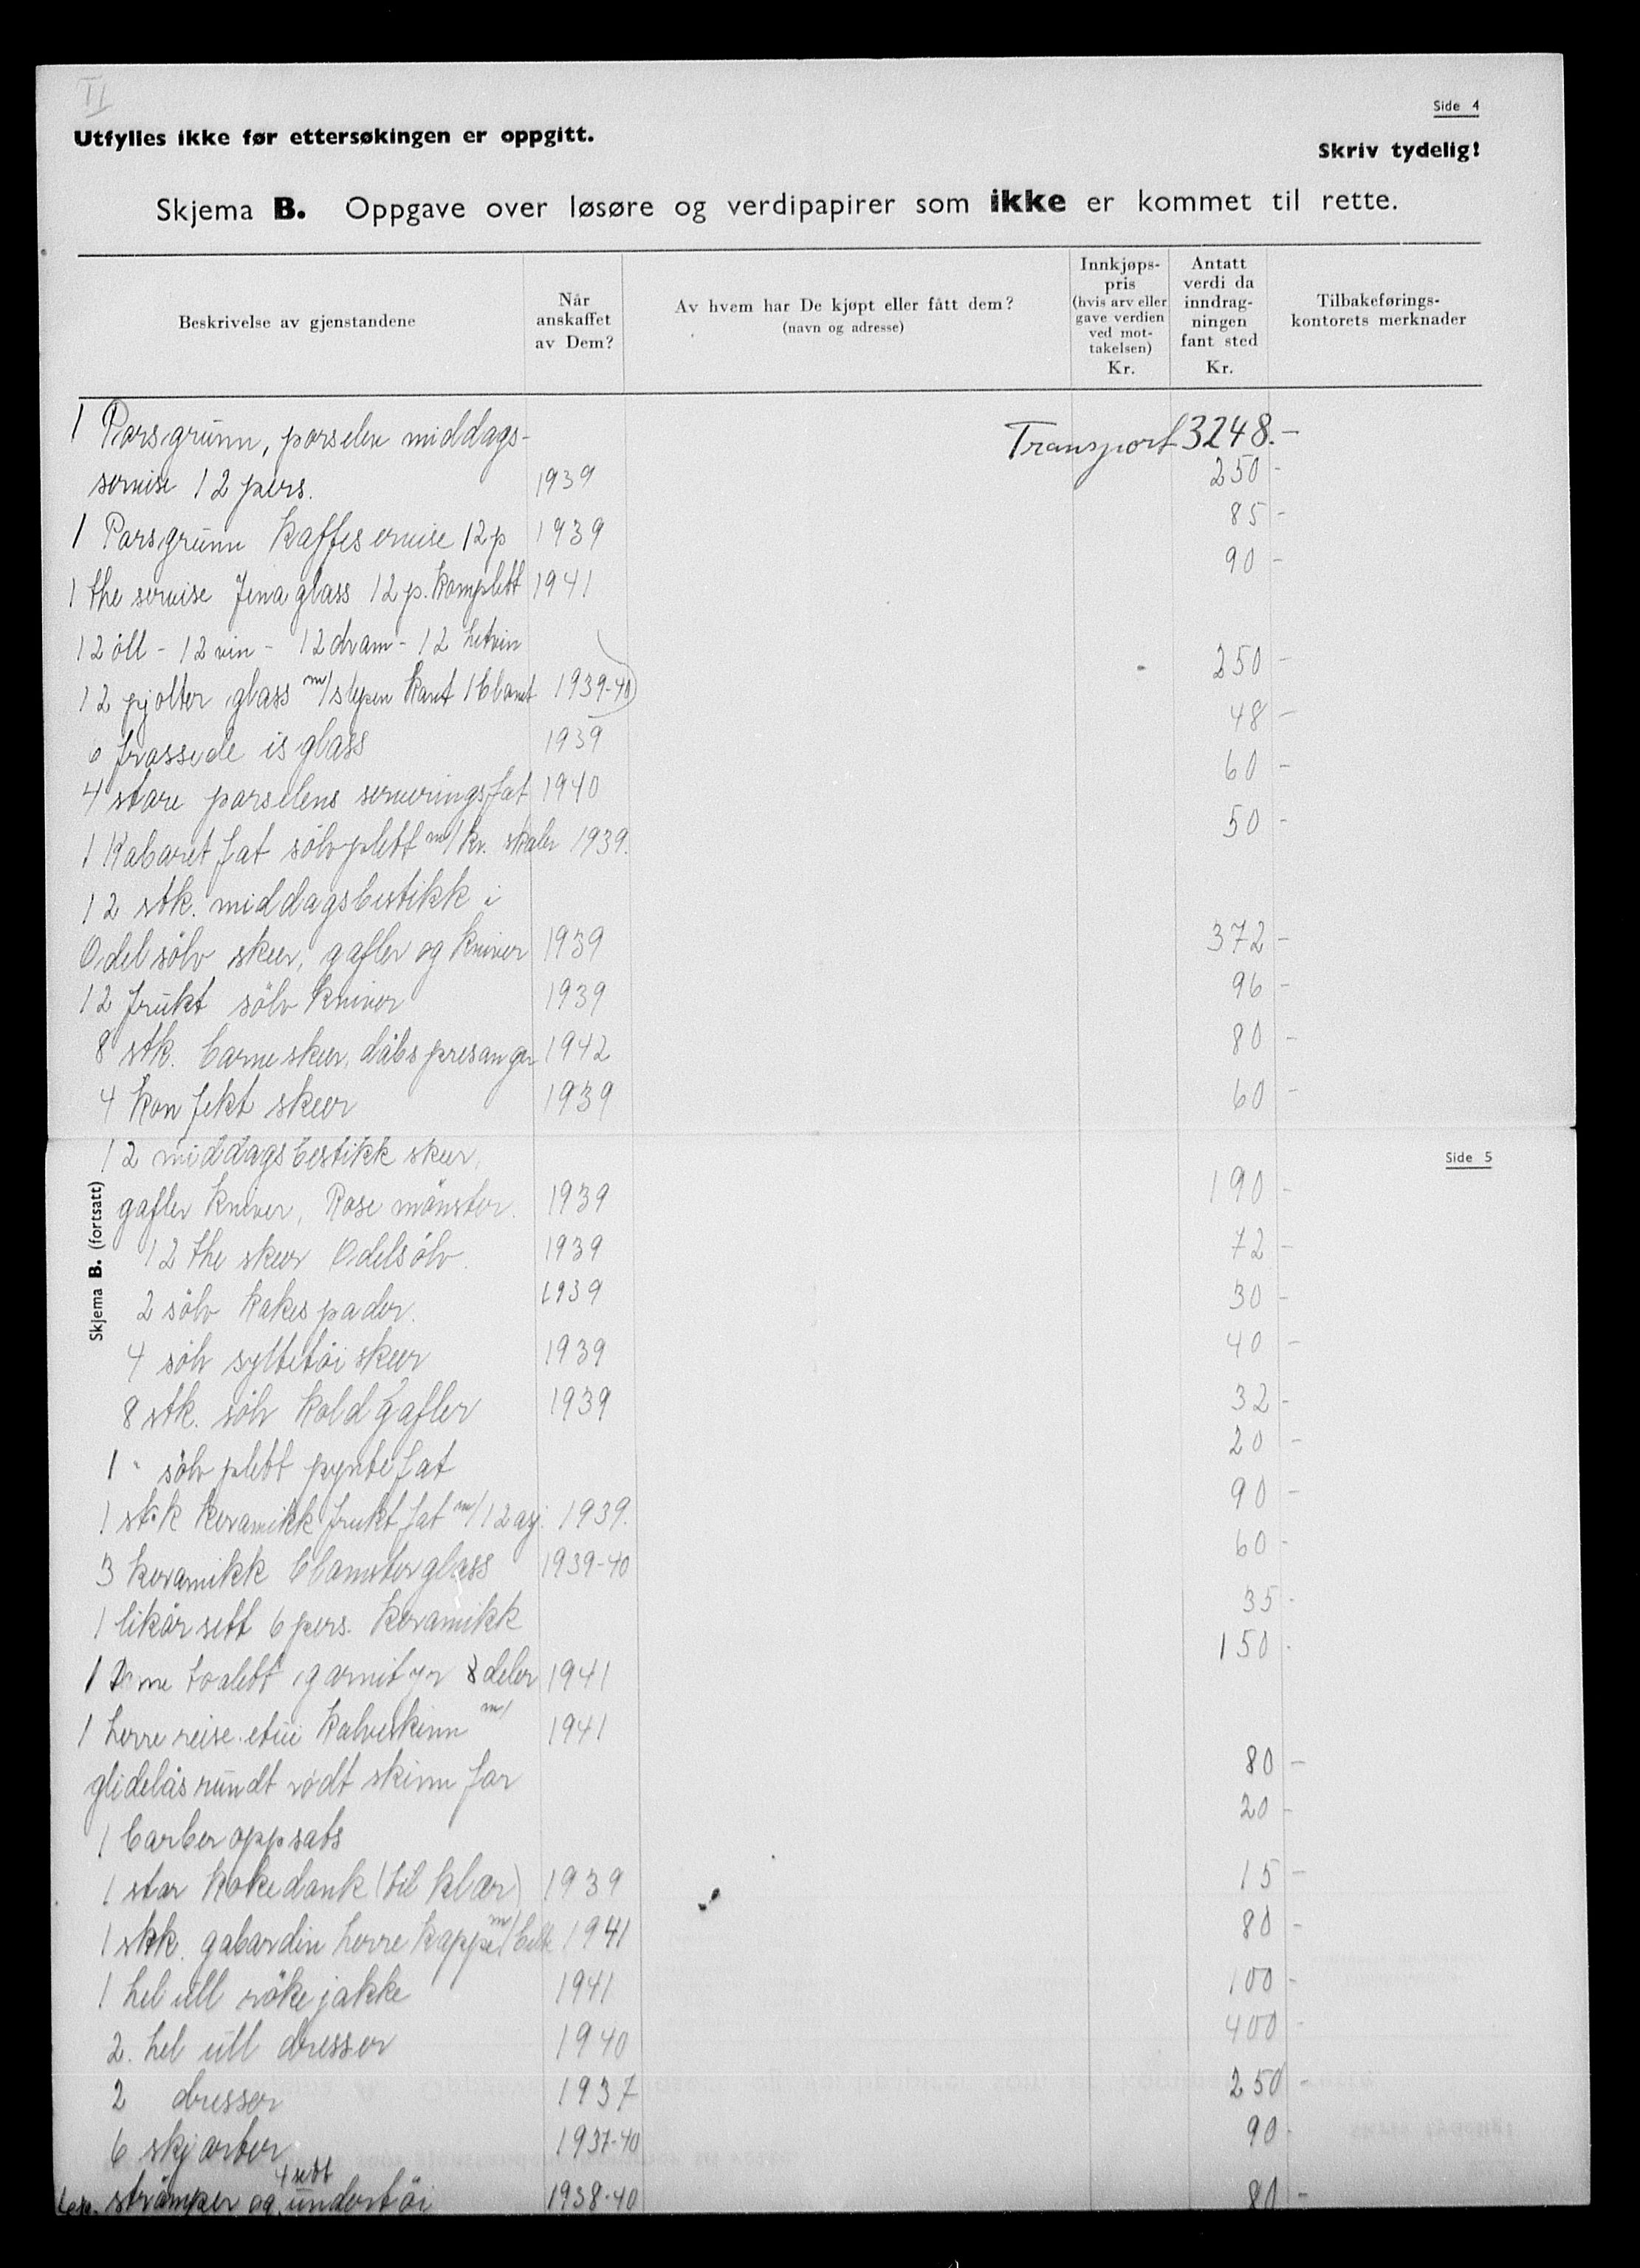 II
Side 4
Utfylles ikke før ettersøkingen er oppgitt.
Skriv tydelig!
Skjema B. Oppgave over løsøre og verdipapirer som ikke er kommet til rette.
Beskrivelse av gjenstandene
Når anskaffet av Dem?
Av hvem har De kjøpt eller fått dem? (navn og adresse)
Innkjøps-pris (hvis arv eller gave verdien ved mot-takelsen) Kr.
Antatt verdi da inndrag-ningen fant sted Kr.
Tilbakeførings-kontorets merknader
Transport 3248.-
1 Porsgrunn, porselen middags-
servise 12 pers. 1939 250 -
1 Porsgrunn kaffeservise 12 p 1939 85 -
1 the servise Jena glass 12 p. komplett 1941 90 -
12 öll - 12 vin - 12 dram - 12 hetvin
12 pjolter glass m/slepen kant 1939-40 250 -
6 frossede is glass 1939 48 -
4 store porselens serveringsfat 1940 60 -
1 Kabaret fat sölvplett m/kr. skåler 1939. 50 -
12 stk. middagsbestikk i
Odel sölv skeer, gafler og kniver 1939 372 -
12 frukt sölv kniver 1939 96 -
8 stk. barneskeer, dåbspresanger 1942 80 -
4 konfekt skeer 1939 60 -
12 middagsbestikk skeer,
Side 5
Skjema B. (fortsatt)
gafler kniver, Rose mönster. 1939 190 -
12 the skeer Odelsölv. 1939 72 -
2 sölv kakespader. 1939 30 -
4 sölv syltetöi skeer 1939 40 -
8 stk. sölv koldgafler 1939 32 -
1 " sölvplett pyntefat 20 -
1 stk keramikk fruktfat m/12 asj. 1939. 90 -
3 keramikk blomsterglass 1939-40 60 -
1 likörsett 6 pers. keramikk 35 -
1 Dame toalett garnityr 8 deler 1941 150 -
1 herre reise-etui kalveskinn m/ 1941
glidelås rundt rödt skinn for 80 -
1 barberoppsats 20 -
1 stor kokedank (til klær) 1939 15 -
1 stk. gabardin herre kappe m/belte 1941 80 -
1 hel ull rökejakke 1941 100 -
2. hel ull dresser 1940 400 -
2 dresser 1937 250 -
6 skjorter 1937-40 90 -
4 sett
strömper og undertöi 1938-40 80 -